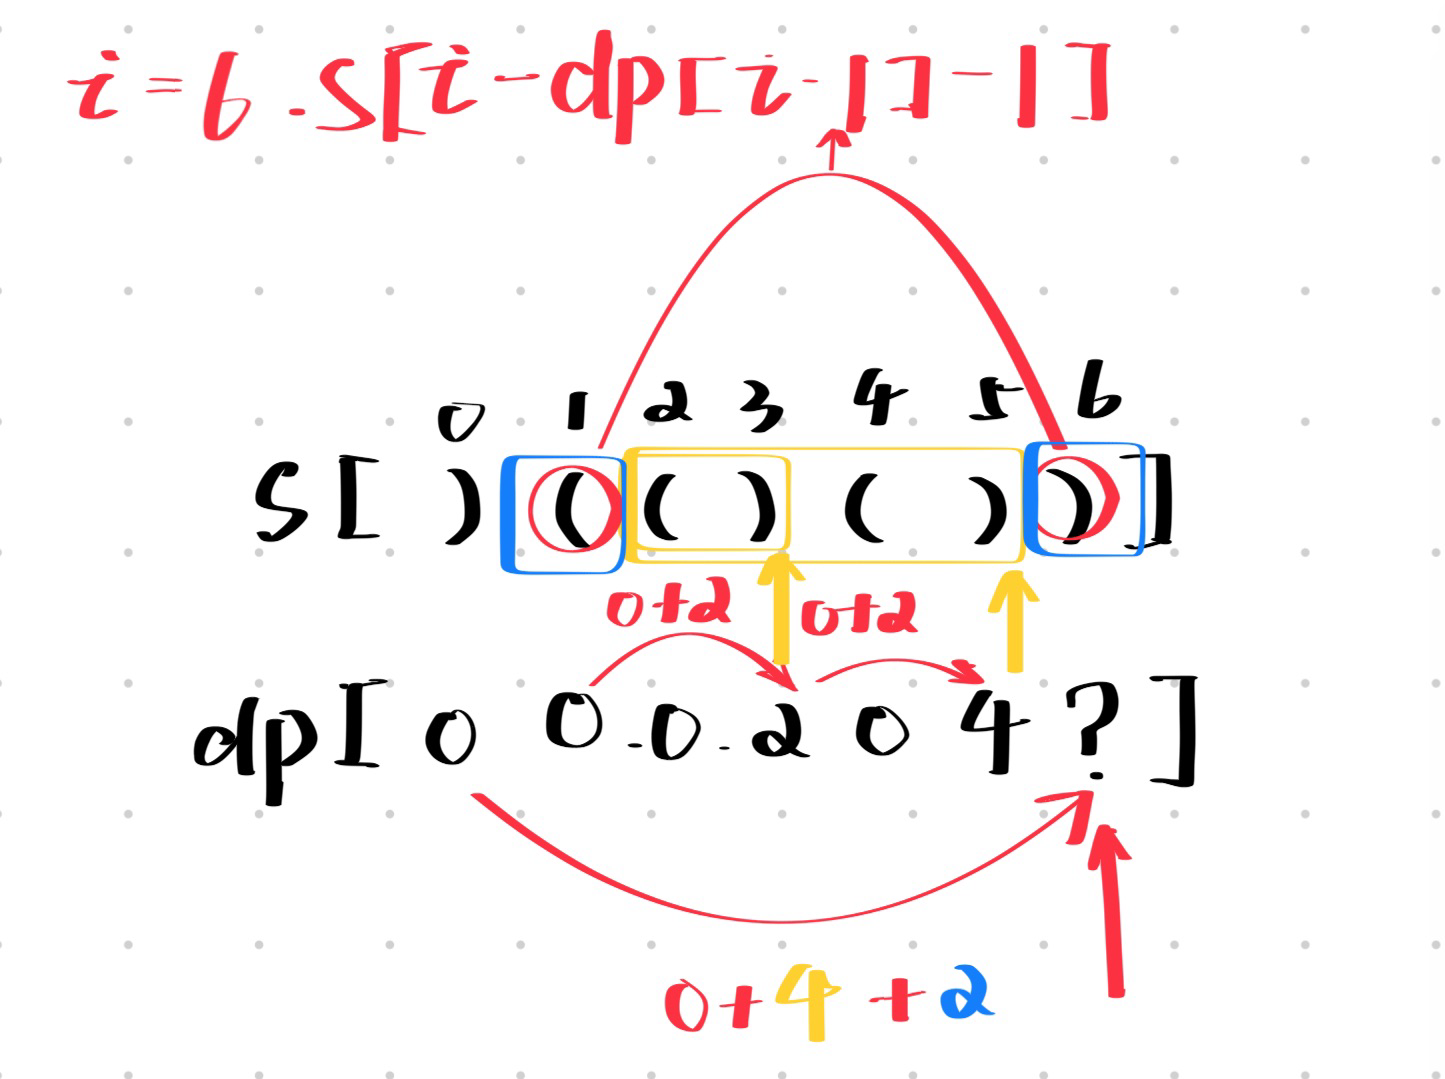 i=6 .S[i-dp[i-1]-1]
0 1 2 3 4 5 6
S[ ) ( ( ) ( ) ) ]
0+2 0+2
dp[ 0 0.0.2 0 4 ? ]
0+4+2